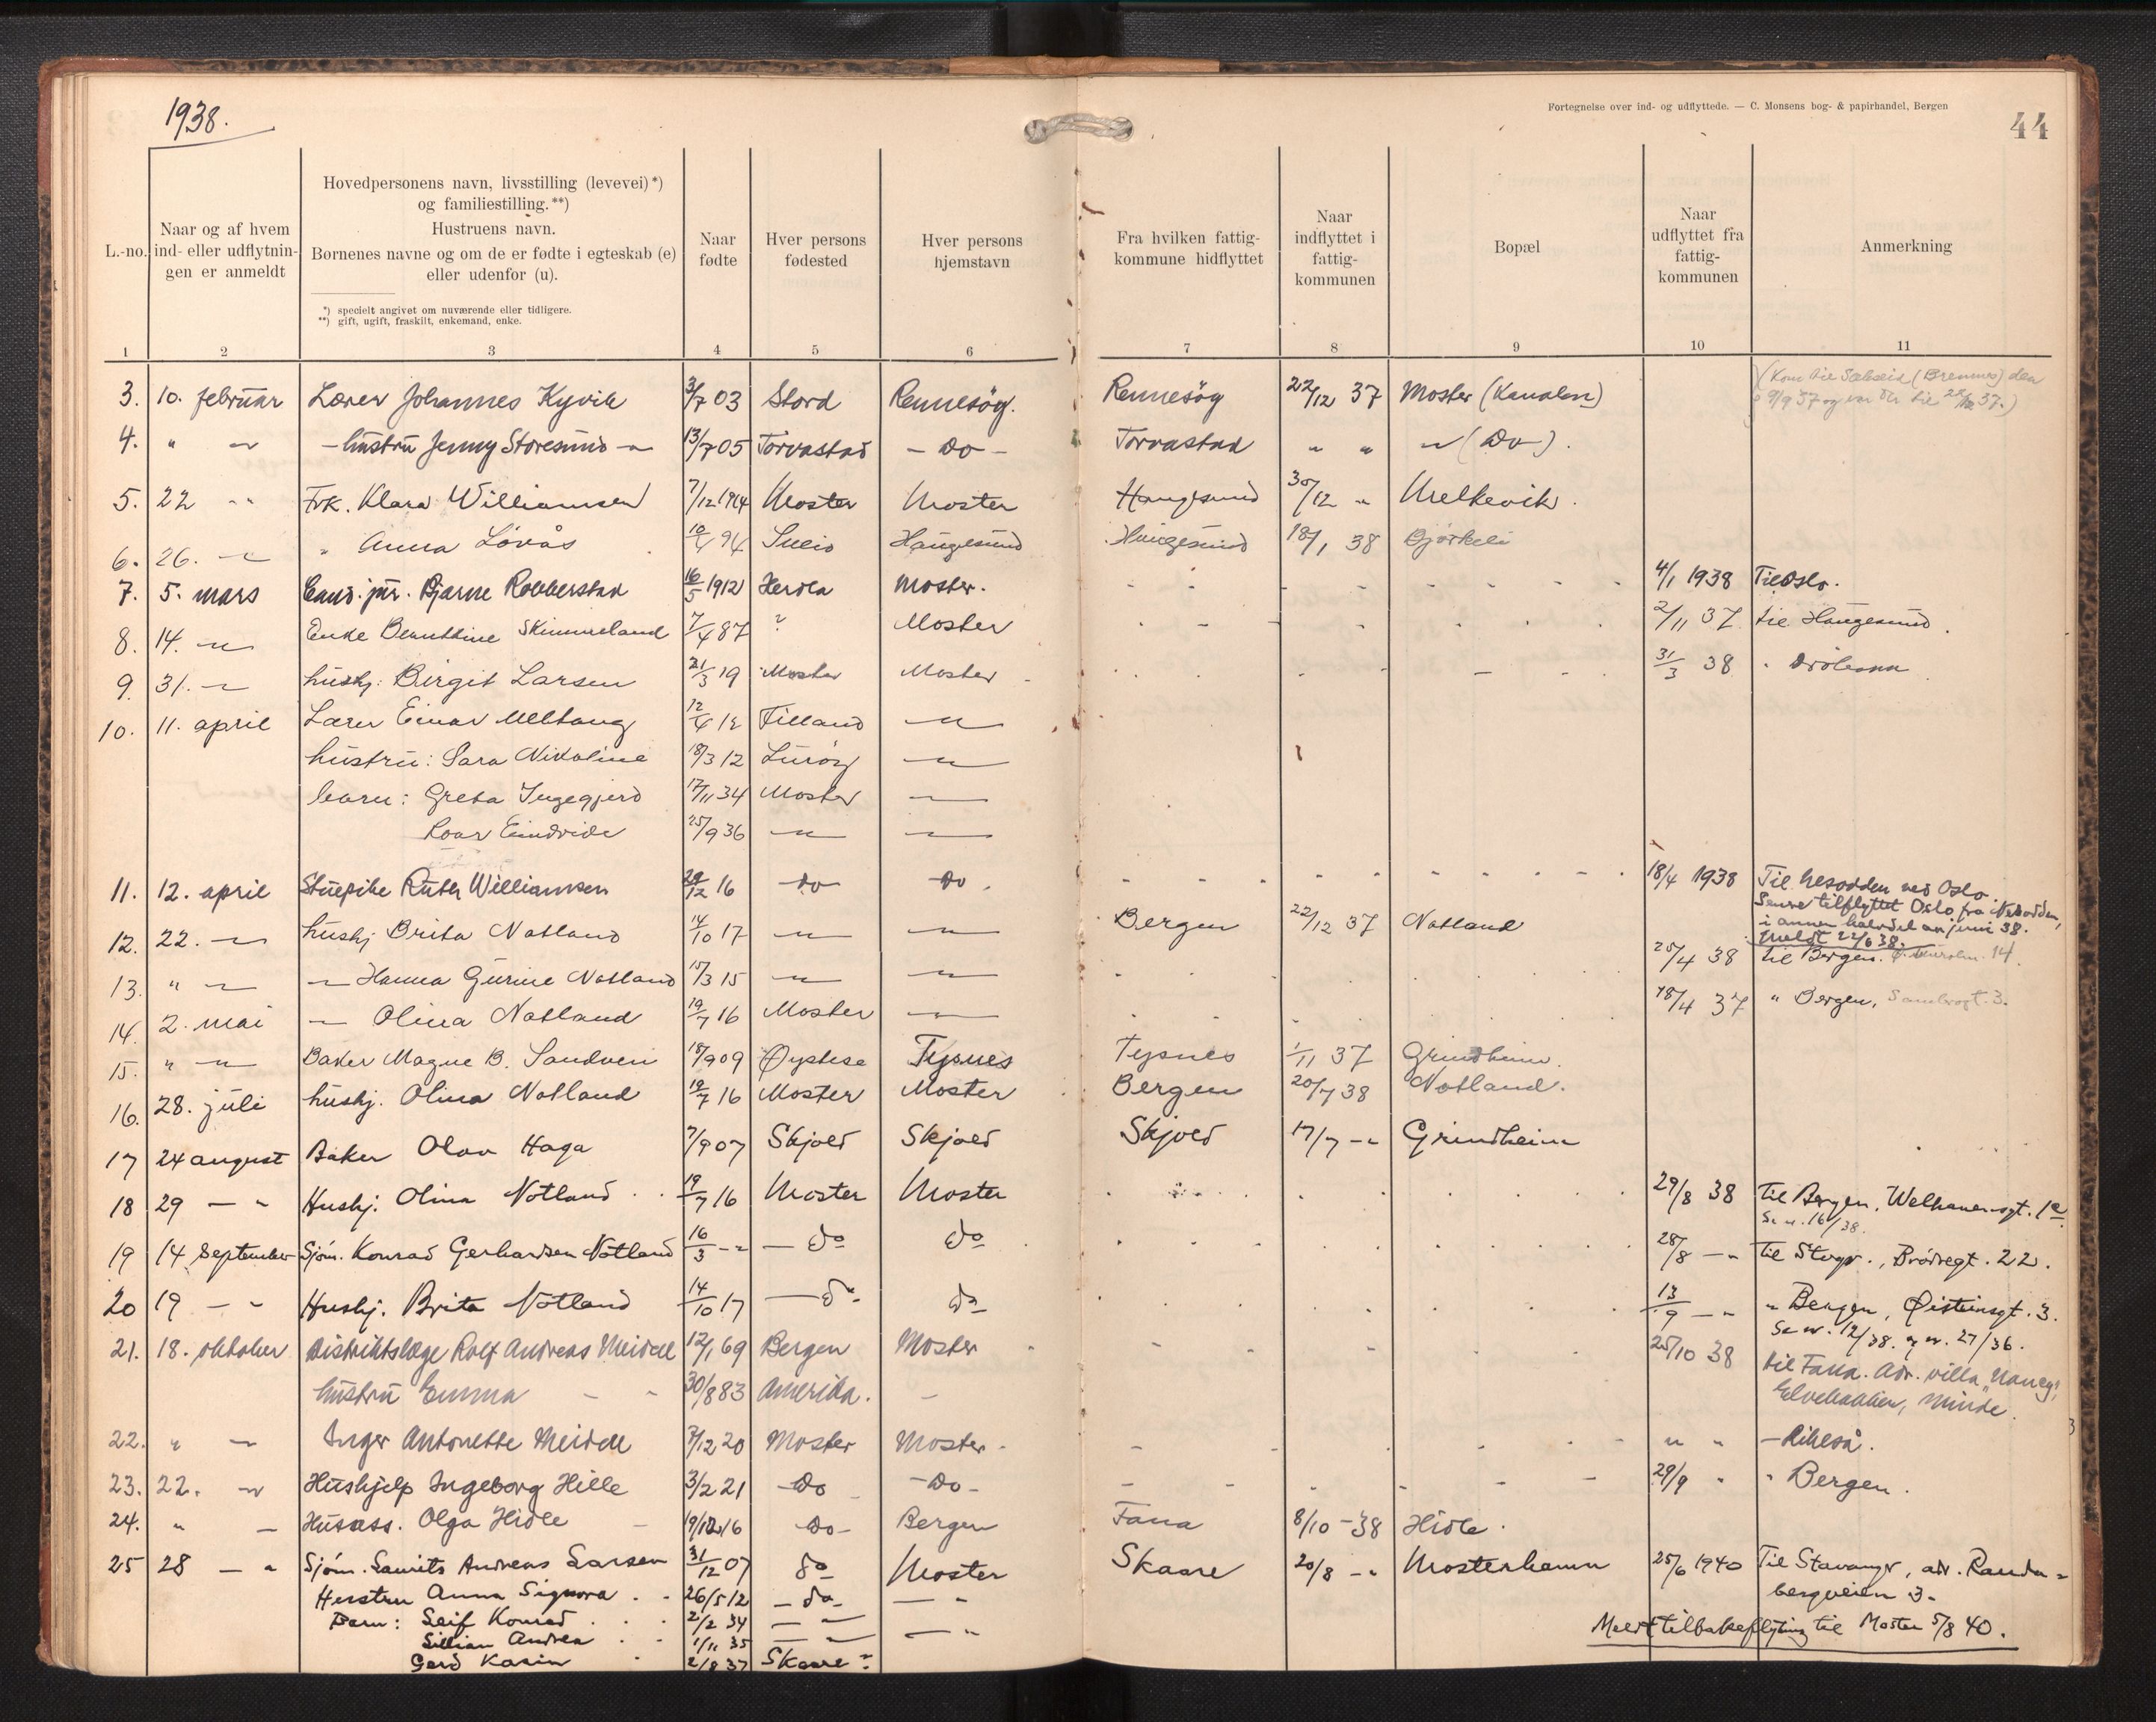 1938.
Fortegnelse over ind- og udflyttede. — C. Monsens bog- & papirhandel, Bergen
44
L.-no.
Naar og af hvem
ind- eller udflytnin-
gen er anmeldt
Hovedpersonens navn, livsstilling (levevei)*)
og familiestilling.**)
Hustruens navn.
Børnenes navne og om de er fødte i egteskab (e)
eller udenfor (u).
*) specielt angivet om nuværende eller tidligere.
**) gift, ugift, fraskilt, enkemand, enke.
Naar
fødte
Hver persons
fødested
Hver persons
hjemstavn
Fra hvilken fattig-
kommune hidflyttet
Naar
indflyttet i
fattig-
kommunen
Bopæl
Naar
udflyttet fra
fattig-
kommunen
Anmerkning
1 2 3 4 5 6 7 8 9 10 11
3. 10. februar Lærer Johannes Kyvik 3/7 03 Stord Rennesøy. Rennesöy 22/12 37 Moster (Kanalen)
4. " — - hustru Jenny Storesund — 13/7 05 Torvastad - Do - Torvastad " " — (Do).
5. 22 " Frk. Klara Williamsen 7/12 1914 Moster Moster Haugesund 30/12 " Melkevik.
6. 26. — " Anna Lövås 94 Sveio Haugesund Haugesund 18/1 38 Björkeli
7. 5. mars Cand. jur. Bjarne Robberstad 16/5 1912 Herdla Moster. 4/1 1938 Til Oslo.
8. 14. — Enke Skimmeland 7/4 87 ? Moster 2/11 37 til Haugesund.
9 31. — hushj. Birgit Larsen 21/3 19 Moster Moster 31/3 38
10. 11. april Lærer Einar 12/4 12 —
hustru: Sara Nikoline 18/3 12 Luröy —
barn: Greta Ingegjerd 17/11 34 Moster —
Roar Eindride 25/9 36 — —
11. 12. april Stuepike Ruth Williamsen 12 16 Do Do. 18/4 1938 Til Nesodden ved Oslo.
Senere tilflyttet Oslo fra Nesodden,
i annen halvdel av juni 38.
Meldt 22/6 38.
12. 22. — hushj Brita Notland 14/10 17 — — Bergen 22/12 37 Notland
13. " — — Hanna Gurine Notland 15/3 15 — — 25/4 38 til Bergen. 14.
14. 2. mai — Olina Notland 19/7 16 Moster — 18/4 37 " Bergen, 3.
15. " — Baker Magne B. Sandven 18/9 09 Øystese Tysnes Tysnes 1/11 37 Grindheim.
16. 28. juli hushj. Olina Notland 19/7 16 Moster Moster Bergen 20/7 38 Notland.
17 24 august Baker Olav Haga 7/9 07 Skjold Skjold Skjold 17/7 — Grindheim
18 29 — " Hushj. Olina Notland 19/7 16 Moster Moster 29/8 38 Til Bergen, Welhavensgt. 1e
Se nr. 16/38.
19 14 September Sjöm. Konrad Gerhardsen Notland 16/3 — — do do 28/8 — " Til Stvgr., Brödregt. 22.
20 19 — " Hushj. Brita Notland 14/10 17 — do do 13/9 — " " Bergen, Øisteinsgt. 3.
Se nr. 12/38. og nr. 27/36.
21. 18. oktober Distriktslæge Rolf Andreas Meidell 12/1 69 Bergen Moster 25/10 38 til Fana. Adr. villa "Nancy"
hustru Emma — " 30/8 83 Amerika. — Elvebakken, Minde.
22. " — Inger Antonette Meidell 7/12 20 Moster Moster " " —
23. 22. — Hushjelp Ingeborg Hille 3/2 21 Do - Do - 29/9 " " Bergen.
24. " — Husass. Olga Hidle 19/12 16 Do - Bergen Fana 8/10 - 38 Hidle.
25 28 — " Sjöm. Laurits Andreas Larsen 31/12 07 do Moster Skaare 20/8 — " Mosterhamn 25/6 1940 Til Stavanger, adr. Randa-
bergveien 3.
Hustru Anna Signora 26/5 12 — do — "
Barn: Leif Konrad 2/2 34 — " — "
Lillian Andrea 1/11 35 — "
Gerd Karin 2/8 37 Skaare
Meldt tilbakeflytting til Moster 5/8 40.